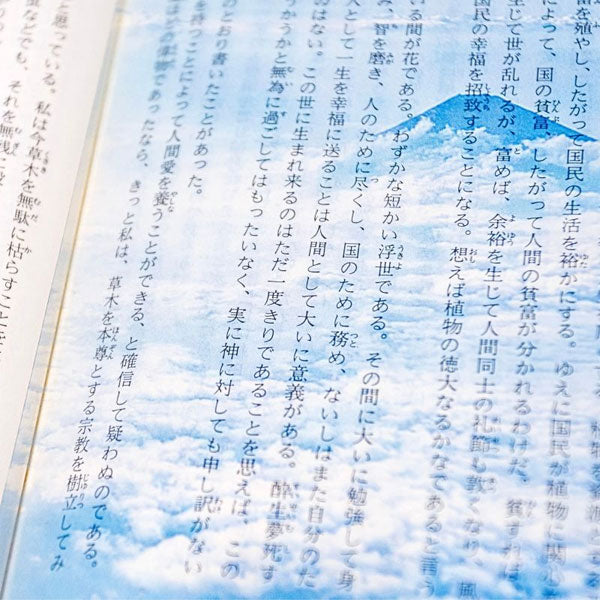 富を殖やし、したがって国民の生活を裕かにする。ゆえに国民が植物に関心
によって、国の貧富、したがって人間の貧富が分かれるわけだ。貧すれば
生じて世が乱れるが、富めば、余裕を生して人間同士の礼節も敦くなり、風
国民の幸福を招致することになる。想えば植物の徳大なるかなであると言う
いる間が花である。わずかな短かい浮世である。その間に大いに勉強して身
、智を磨き、人のために尽くし、国のために務め、ないしはまた自分のた
人として一生を幸福に送ることは人間として大いに意義がある。酔生夢死す
のはない。この世に生まれ来るのはただ一度きりであることを思えば、この
うかうかと無為に過ごしてはもったいなく、実に神に対しても申し訳がない
のとおり書いたことがあった。
を持つことによって人間愛を養うことができる、と確信して疑わぬのである。
であったなら、きっと私は、草木を本尊とする宗教を樹立してみ
と思っている。私は今草木を無駄に枯らすことを
などでも、それを無残に